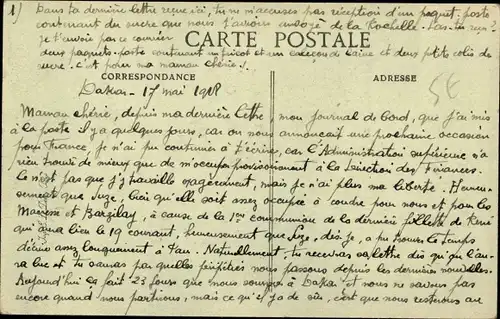 1) Dans ta dernière lettre reçue ici, tu ne m'accuses pas réception d'un paquet-poste
contenant du sucre que nous t'avions envoyé de la Rochelle. L'as-tu reçu?
je t'envoie par ce courrier
deux paquets-poste contenant un tricot et un caleçon de laine et deux petits colis de
sucre. C'est pour ma maman chérie.
CARTE POSTALE
CORRESPONDANCE
ADRESSE
5€
Dakar - 17 mai 1918
Maman chérie, depuis ma dernière lettre, mon journal de bord, que j'ai mis
à la poste il y a quelques jours, car on nous annonçait une prochaine occasion
pour France, je n'ai pu continuer à t'écrire, car l'Administration supérieure n'a
rien trouvé de mieux que de m'occuper provisoirement à la Direction des Finances.
Ce n'est pas que j'y travaille exagérément, mais je n'ai plus ma liberté. Heureu-
sement que Suze, bien qu'elle soit assez occupée à coudre pour nous et pour les
Maresse et Barzilay, à cause de la 1ère communion de la dernière fillette de René
qui aura lieu le 19 courant, heureusement que Suze, dis-je, a pu trouver le temps
d'écrire assez longuement à Pau. Naturellement, tu recevras sa lettre dès qu'on l'au-
ra lue et tu sauras par quelles péripéties nous passons depuis les dernières nouvelles.
Aujourd'hui ça fait 23 jours que nous sommes à Dakar et nous ne savons pas
encore quand nous partirons, mais ce qu'il y a de sûr, c'est que nous resterons au